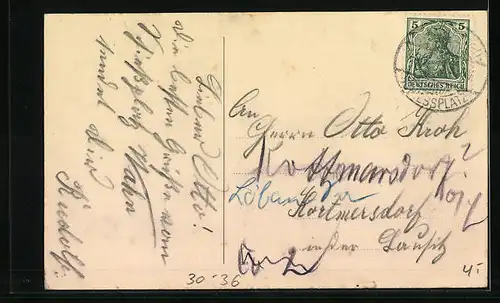 Lieber Otto!
Die besten Grüße vom
Schießplatz Wahn
sendet Dir
Rudolf.
5 5
DEUTSCHES REICH
ESSPLATZ
An
Herrn Otto Kroh
Kottmarsdorf?
Löbau
Kortmersdorf
in der Lausitz
30-36
4,-